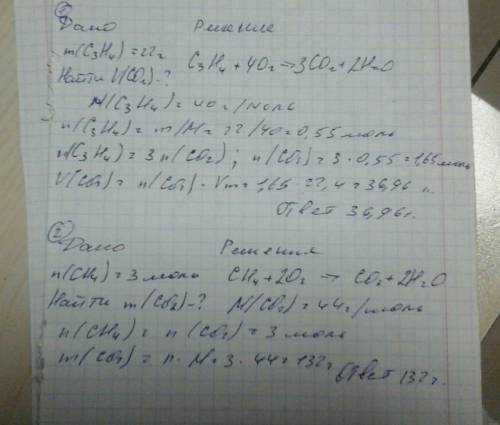 ① Дано Решение
m(C₃H₄)=22г C₃H₄+4O₂→3CO₂+2H₂O
Найти V(CO₂)-?
M(C₃H₄)=40г/моль
n(C₃H₄)=m/M=22/40=0,55моль
n(C₃H₄)=3n(CO₂); n(CO₂)=3·0,55=1,65моль
V(CO₂)=n(CO₂)·Vm=1,65·22,4=36,96 л.
Ответ 36,96л.
② Дано Решения
n(CH₄)=3моль CH₄+2O₂→CO₂+2H₂O
Найти m(CO₂)-? M(CO₂)=44г/моль
n(CH₄)=n(CO₂)=3моль
m(CO₂)=n·M=3·44=132г Ответ 132г.